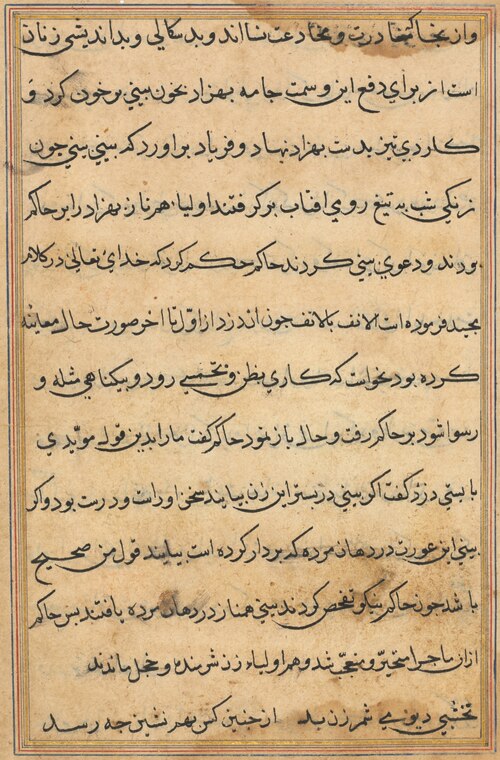 واز بخا کتخا درت و مخادعت نشااند وبد سکالی وبد اندیشی زنان
است از برای دفع این وسمت جامه بهزاد بخون بینی پرخون کرد و
کاردی تیز بدست بهزاد نهاد و فریاد براورد که بینی من چون
زنکی شب به تیغ روی افتاب ببر کرفتند اولیا همرناز بهزاد را بر حاکم
بردند و دعوی بینی کردند حاکم حکم کرد که خدای تعالی در کلام
مجید فرموده است الانف بالانف چون اندزد از اول تا اخر صورت حال معاینه
کرده بود نخواست که کاری بظن وتخمین رود و بیکناهی مثله و
رسوا شود بر حاکم رفت و حال باز نمود حاکم گفت ما را بدین قول مویدی
بایستی دزد گفت اکر بینی در بستر این زن بیابند سخن او راست و درست بود و اکر
بینی این عورت در دهان مرده که بر دار کرده است بیابند قول من صحیح
باشد چون حاکم نیکو تفحص کردند بینی همناز در دهان مرده یافتند پس حاکم
ازان ماجرا متحیر و متعجب شد و همه اولیاء زن شرمنده و خجل ماندند
نخشبی دیو بی شمر زن بد از چنین کس بهر نشین چه رسد